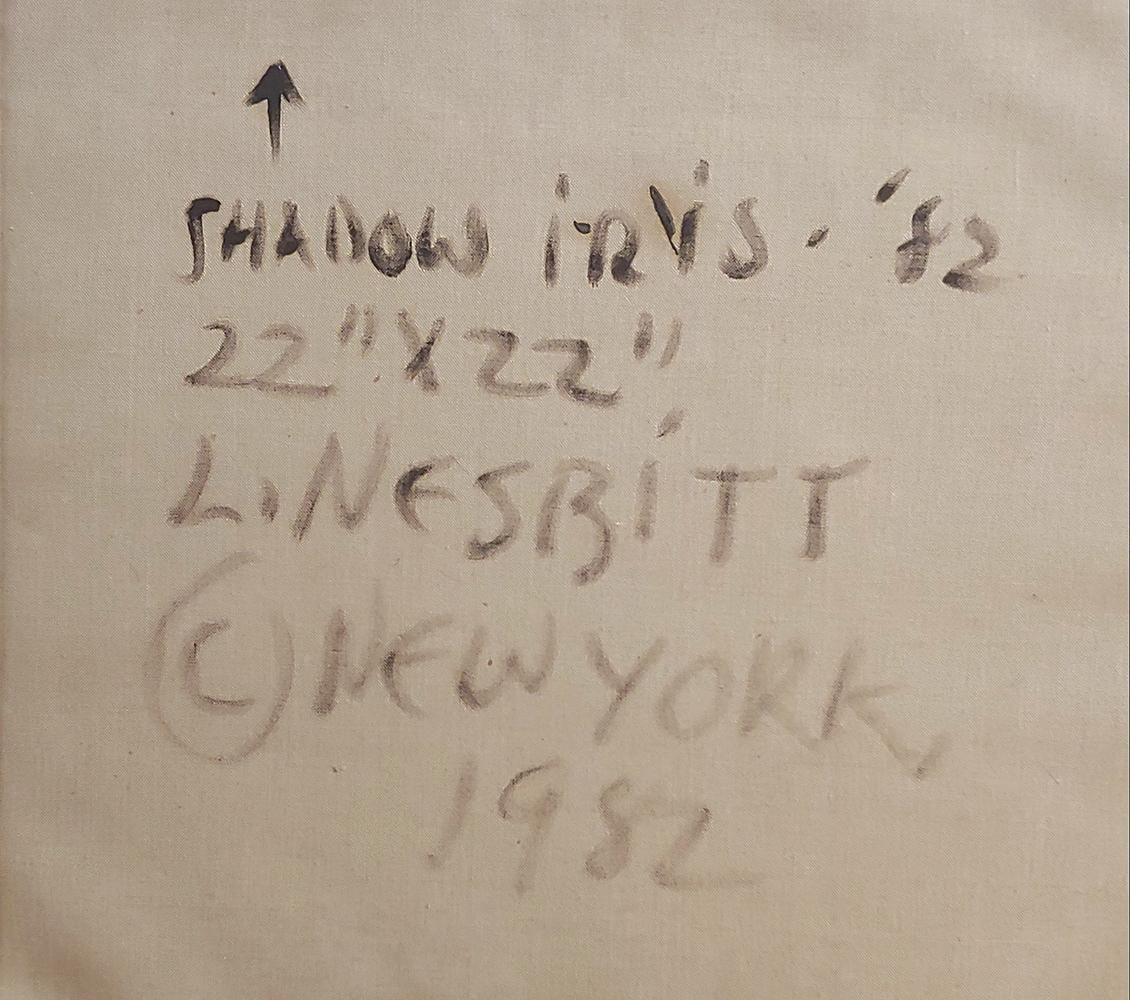 SHADOW iRiS - '82
22" X 22"
L. NESBiTT
© NEW YORK,
1982